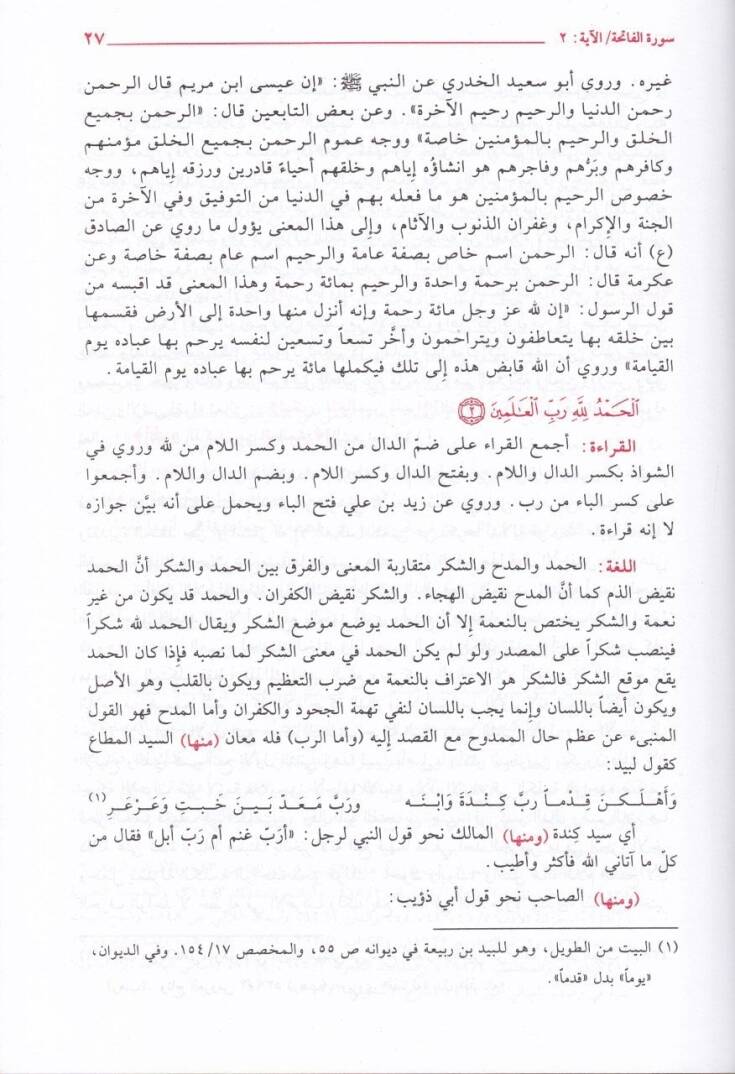 سورة الفاتحة/ الآية: ٢ ٢٧
غيره. وروي أبو سعيد الخدري عن النبي ﷺ: «إن عيسى ابن مريم قال الرحمن
رحمن الدنيا والرحيم رحيم الآخرة». وعن بعض التابعين قال: «الرحمن بجميع
الخلق والرحيم بالمؤمنين خاصة» ووجه عموم الرحمن بجميع الخلق مؤمنهم
وكافرهم وبَرُّهم وفاجرهم هو انشاؤُه إياهم وخلقهم أحياءً قادرين ورزقه إياهم، ووجه
خصوص الرحيم بالمؤمنين هو ما فعله بهم في الدنيا من التوفيق وفي الآخرة من
الجنة والإكرام، وغفران الذنوب والآثام، وإلى هذا المعنى يؤول ما روي عن الصادق
(ع) أنه قال: الرحمن اسم خاص بصفة عامة والرحيم اسم عام بصفة خاصة وعن
عكرمة قال: الرحمن برحمة واحدة والرحيم بمائة رحمة وهذا المعنى قد اقبسه من
قول الرسول: «إن لله عز وجل مائة رحمة وإنه أنزل منها واحدة إلى الأرض فقسمها
بين خلقه بها يتعاطفون ويتراحمون وأخَّر تسعاً وتسعين لنفسه يرحم بها عباده يوم
القيامة» وروي أن الله قابض هذه إلى تلك فيكملها مائة يرحم بها عباده يوم القيامة.
اَلْحَمْدُ لِلَّهِ رَبِّ الْعَالَمِينَ ﴿٢﴾
القراءة: أجمع القراء على ضم الدال من الحمد وكسر اللام من لله وروي في
الشواذ بكسر الدال واللام. وبفتح الدال وكسر اللام. وبضم الدال واللام. وأجمعوا
على كسر الباء من رب. وروي عن زيد بن علي فتح الباء ويحمل على أنه بيَّن جوازه
لا إنه قراءة.
اللغة: الحمد والمدح والشكر متقاربة المعنى والفرق بين الحمد والشكر أنَّ الحمد
نقيض الذم كما أنَّ المدح نقيض الهجاء. والشكر نقيض الكفران. والحمد قد يكون من غير
نعمة والشكر يختص بالنعمة إلا أن الحمد يوضع موضع الشكر ويقال الحمد لله شكراً
فينصب شكراً على المصدر ولو لم يكن الحمد في معنى الشكر لما نصبه فإذا كان الحمد
يقع موقع الشكر فالشكر هو الاعتراف بالنعمة مع ضرب التعظيم ويكون بالقلب وهو الأصل
ويكون أيضاً باللسان وإنما يجب باللسان لنفي تهمة الجحود والكفران وأما المدح فهو القول
المنبىء عن عظم حال الممدوح مع القصد إليه (وأما الرب) فله معان (منها) السيد المطاع
كقول لبيد:
وَأَهْلَكْنَ قِدْماً رَبِّ كِنْدَةَ وَابْنَه ورَبَّ مَعَدّ بَينَ خَبْتٍ وَعَرْعَرِ(١)
أي سيد كِندة (ومنها) المالك نحو قول النبي لرجل: «أرَبّ غنم أم رَبّ أبل» فقال من
كلّ ما آتاني الله فأكثر وأطيب.
(ومنها) الصاحب نحو قول أبي ذؤيب:
(١) البيت من الطويل، وهو للبيد بن ربيعة في ديوانه ص ٥٥، والمخصص ١٧/ ١٥٤. وفي الديوان،
«يوماً» بدل «قدماً».